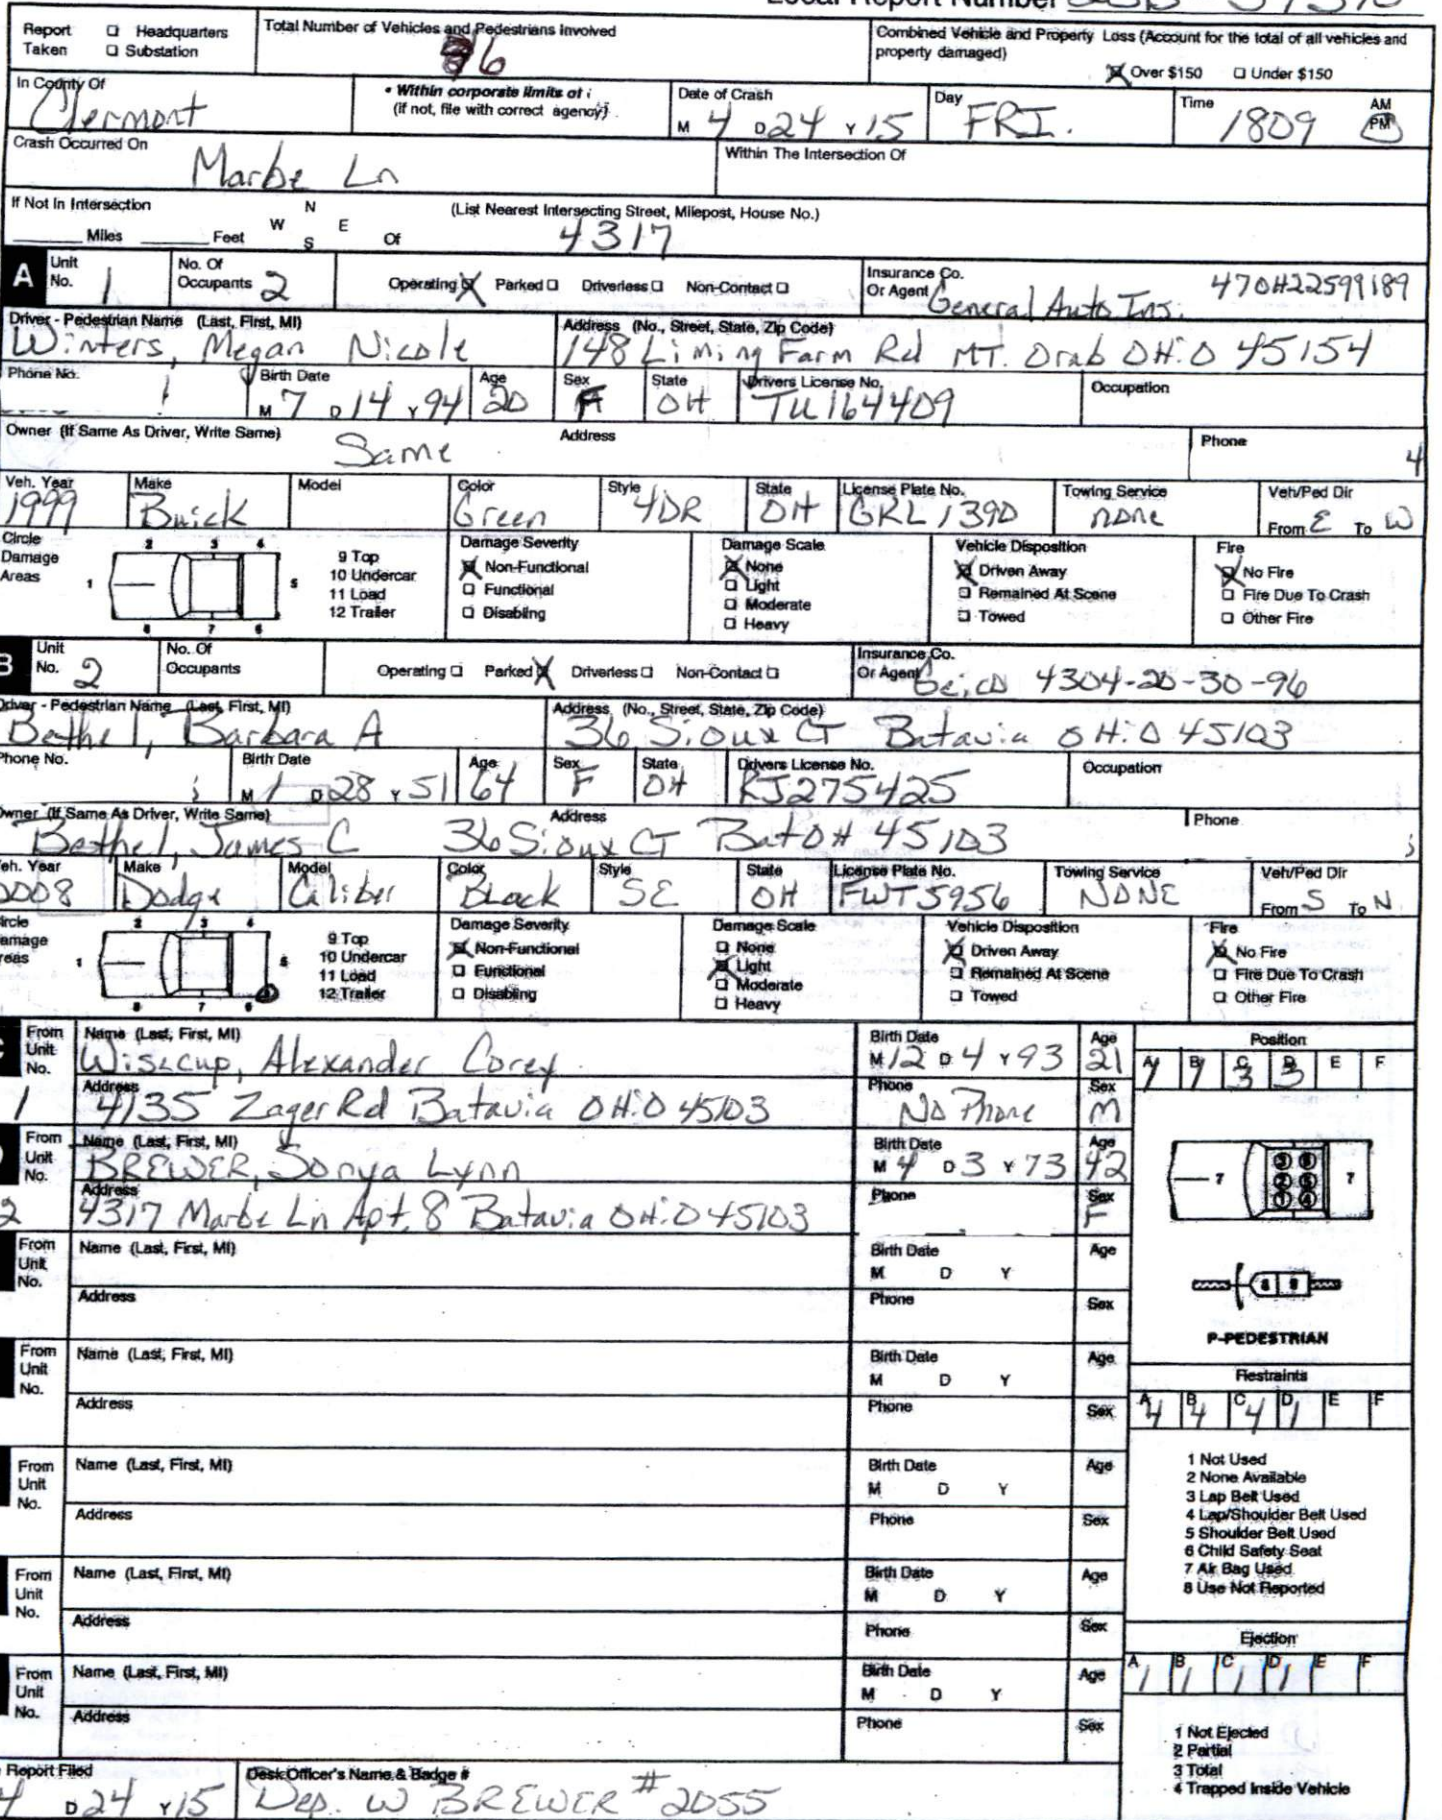 Local Report Number
Report Taken ☐ Headquarters ☐ Substation
Total Number of Vehicles and Pedestrians Involved
6
Combined Vehicle and Property Loss (Account for the total of all vehicles and property damaged)
☒ Over $150 ☐ Under $150
In County Of Clermont
• Within corporate limits of :
(if not, file with correct agency)
Date of Crash M 4 D 24 Y 15
Day FRI.
Time 1809 AM PM
Crash Occurred On Marbe Ln
Within The Intersection Of
If Not In Intersection
Miles Feet N W E S Of
(List Nearest Intersecting Street, Milepost, House No.)
4317
A Unit No. 1 No. Of Occupants 2 Operating ☒ Parked ☐ Driverless ☐ Non-Contact ☐
Insurance Co. Or Agent General Auto Ins. 470H22599189
Driver - Pedestrian Name (Last, First, MI) Winters, Megan Nicole
Address (No., Street, State, Zip Code) 148 Liming Farm Rd MT. Orab OHIO 45154
Phone No. Birth Date M 7 D 14 Y 94 Age 20 Sex F State OH Drivers License No. TU164409 Occupation
Owner (If Same As Driver, Write Same) Same Address Phone 4
Veh. Year 1999 Make Buick Model Color Green Style 4DR State OH License Plate No. GRL1390 Towing Service NONE Veh/Ped Dir From E To W
Circle Damage Areas
1 2 3 4 5 6 7 8
9 Top
10 Undercar
11 Load
12 Trailer
Damage Severity
☒ Non-Functional
☐ Functional
☐ Disabling
Damage Scale
☒ None
☐ Light
☐ Moderate
☐ Heavy
Vehicle Disposition
☒ Driven Away
☐ Remained At Scene
☐ Towed
Fire
☒ No Fire
☐ Fire Due To Crash
☐ Other Fire
B Unit No. 2 No. Of Occupants Operating ☐ Parked ☒ Driverless ☐ Non-Contact ☐
Insurance Co. Or Agent Geico 4304-20-30-96
Driver - Pedestrian Name (Last, First, MI) Bethel, Barbara A
Address (No., Street, State, Zip Code) 36 Sioux CT Batavia OHIO 45103
Phone No. Birth Date M 1 D 28 Y 51 Age 64 Sex F State OH Drivers License No. RJ275425 Occupation
Owner (If Same As Driver, Write Same) Bethel, James C Address 36 Sioux CT Bat OH 45103 Phone
Veh. Year 2008 Make Dodge Model Caliber Color Black Style SE State OH License Plate No. FWT5956 Towing Service NONE Veh/Ped Dir From S To N
Circle Damage Areas
1 2 3 4 5 6 7 8
9 Top
10 Undercar
11 Load
12 Trailer
Damage Severity
☒ Non-Functional
☐ Functional
☐ Disabling
Damage Scale
☐ None
☒ Light
☐ Moderate
☐ Heavy
Vehicle Disposition
☒ Driven Away
☐ Remained At Scene
☐ Towed
Fire
☒ No Fire
☐ Fire Due To Crash
☐ Other Fire
C From Unit No. 1 Name (Last, First, MI) Wisecup, Alexander Corey
Birth Date M 12 D 4 Y 93 Age 21
Address 4135 Zager Rd Batavia OHIO 45103
Phone No Phone Sex M
From Unit No. 2 Name (Last, First, MI) BREWER, Sonya Lynn
Birth Date M 4 D 3 Y 73 Age 42
Address 4317 Marbe Ln Apt. 8 Batavia OHIO 45103
Phone Sex F
From Unit No. Name (Last, First, MI) Birth Date M D Y Age
Address Phone Sex
From Unit No. Name (Last, First, MI) Birth Date M D Y Age
Address Phone Sex
From Unit No. Name (Last, First, MI) Birth Date M D Y Age
Address Phone Sex
From Unit No. Name (Last, First, MI) Birth Date M D Y Age
Address Phone Sex
From Unit No. Name (Last, First, MI) Birth Date M D Y Age
Address Phone Sex
Position
A 1 B 1 C 3 D 3 E F
7 7
3 6
2 5
1 4
8 9
P-PEDESTRIAN
Restraints
A 4 B 4 C 4 D 1 E F
1 Not Used
2 None Available
3 Lap Belt Used
4 Lap/Shoulder Belt Used
5 Shoulder Belt Used
6 Child Safety Seat
7 Air Bag Used
8 Use Not Reported
Ejection
A 1 B 1 C 1 D 1 E F
1 Not Ejected
2 Partial
3 Total
4 Trapped Inside Vehicle
Report Filed 4 D 24 Y 15
Desk Officer's Name & Badge # Dep. W BREWER #2055